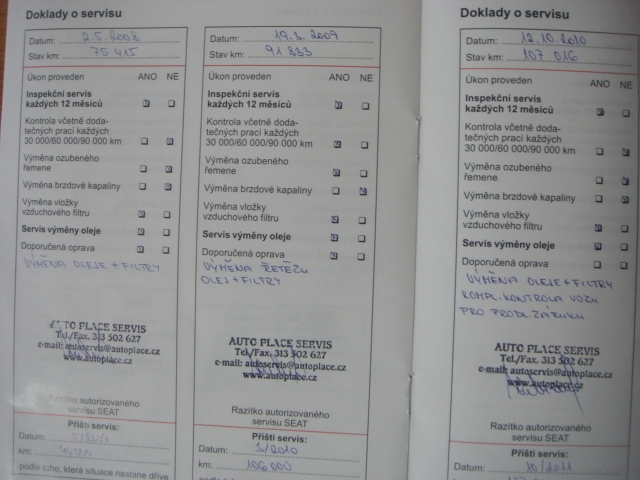 Doklady o servisu
Datum: 2.5.2008
Stav km: 75 415
Úkon proveden ANO NE
Inspekční servis
každých 12 měsíců
Kontrola včetně doda-
tečných prací každých
30 000/60 000/90 000 km
Výměna ozubeného
řemene
Výměna brzdové kapaliny
Výměna vložky
vzduchového filtru
Servis výměny oleje
Doporučená oprava
VÝMĚNA OLEJE + FILTRY
AUTO PLACE SERVIS
Tel./Fax. 313 502 627
e-mail: autoservis@autoplace.cz
www.autoplace.cz
Razítko autorizovaného
servisu SEAT
Příští servis:
Datum:
km:
podle toho, která situace nastane dříve
Datum: 19.3.2009
Stav km: 91 833
Úkon proveden ANO NE
Inspekční servis
každých 12 měsíců
Kontrola včetně doda-
tečných prací každých
30 000/60 000/90 000 km
Výměna ozubeného
řemene
Výměna brzdové kapaliny
Výměna vložky
vzduchového filtru
Servis výměny oleje
Doporučená oprava
VÝMĚNA ŘETĚZU
OLEJ + FILTRY
AUTO PLACE SERVIS
Tel./Fax. 313 502 627
e-mail: autoservis@autoplace.cz
www.autoplace.cz
Razítko autorizovaného
servisu SEAT
Příští servis:
Datum: 3/2010
km: 106 000
Doklady o servisu
Datum: 12.10.2010
Stav km: 107 016
Úkon proveden ANO NE
Inspekční servis
každých 12 měsíců
Kontrola včetně doda-
tečných prací každých
30 000/60 000/90 000 km
Výměna ozubeného
řemene
Výměna brzdové kapaliny
Výměna vložky
vzduchového filtru
Servis výměny oleje
Doporučená oprava
VÝMĚNA OLEJE + FILTRY
KOMPL. KONTROLA VOZU
PRO PRODL. ZÁRUKU
AUTO PLACE SERVIS
Tel./Fax. 313 502 627
e-mail: autoservis@autoplace.cz
www.autoplace.cz
Razítko autorizovaného
servisu SEAT
Příští servis:
Datum: 10/2011